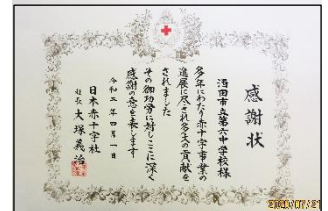 感謝状
酒田市立第六中学校様
多年にわたり赤十字事業の
進展に尽され多大の貢献を
されました
その御功労に対しここに深く
感謝の意を表します
令和二年四月一日
日本赤十字社
社長 大塚義治
2020/07/21